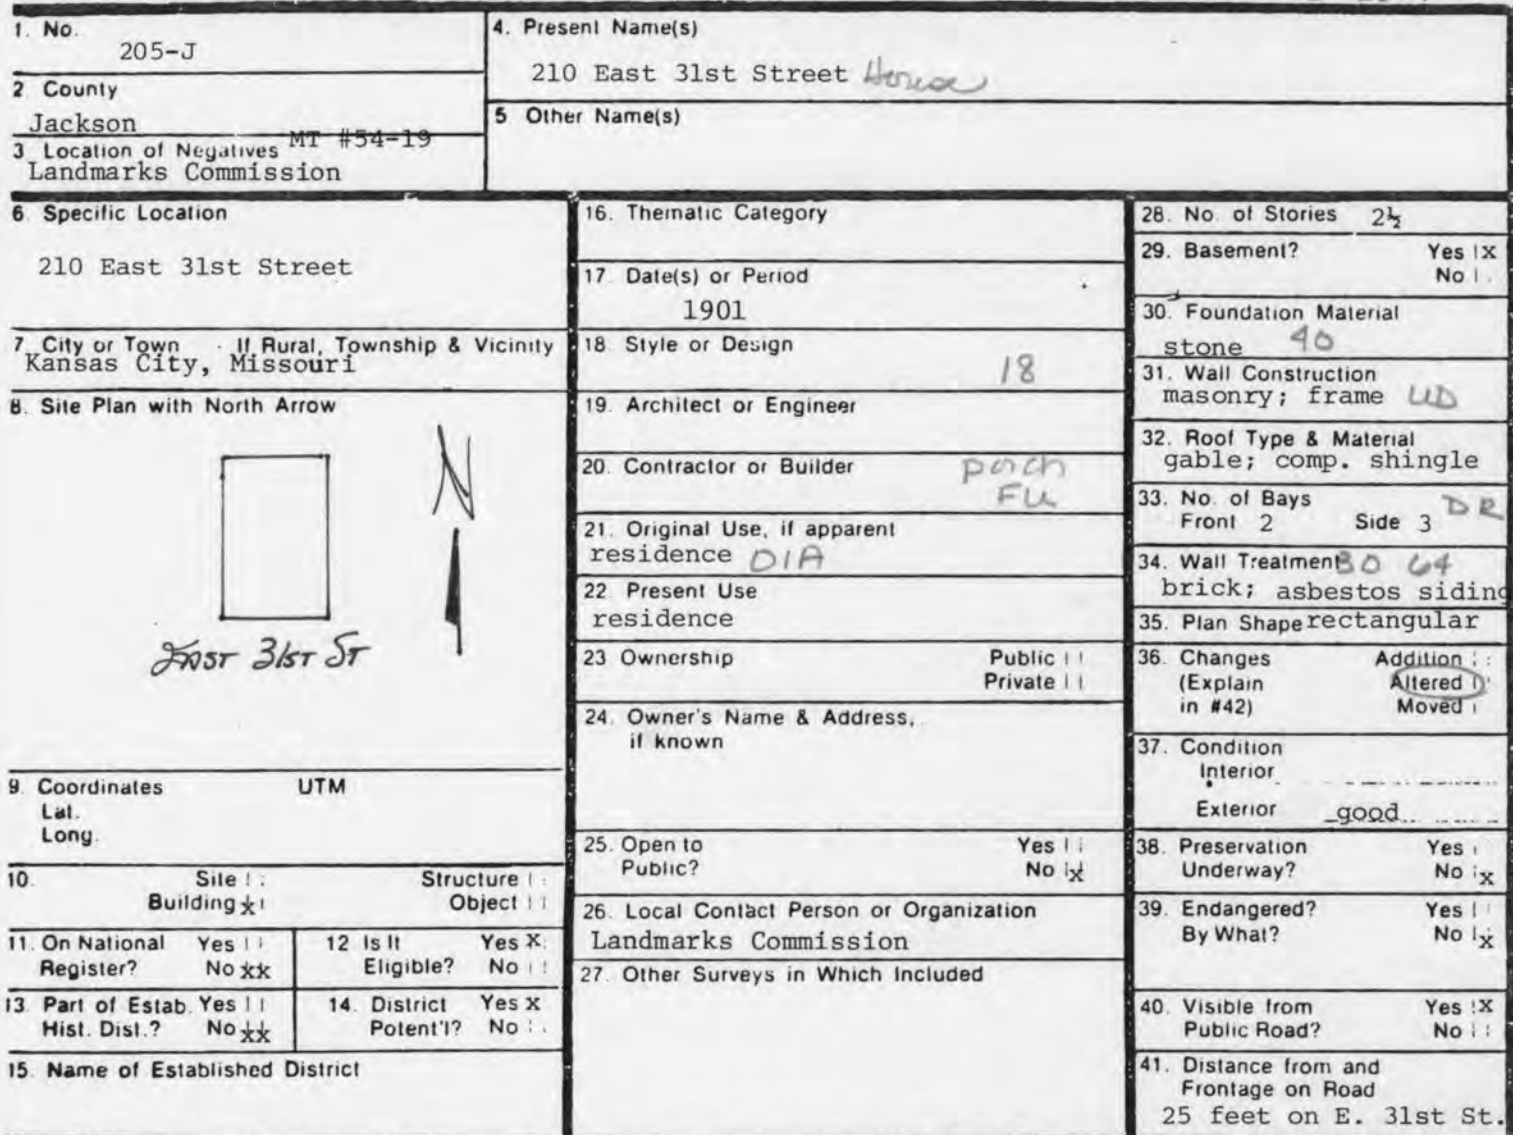 1. No.
205-J
2 County
Jackson
3 Location of Negatives MT #54-19
Landmarks Commission
4. Present Name(s)
210 East 31st Street House
5 Other Name(s)
6. Specific Location
210 East 31st Street
7. City or Town If Rural, Township & Vicinity
Kansas City, Missouri
8. Site Plan with North Arrow
N
EAST 31ST ST
9. Coordinates UTM
Lat.
Long.
10. Site Structure
Building x Object
11. On National Yes
Register? No xx
12 Is It Yes X
Eligible? No
13. Part of Estab. Yes
Hist. Dist.? No xx
14. District Yes X
Potent'l? No
15. Name of Established District
16. Thematic Category
17. Date(s) or Period
1901
18. Style or Design
18
19. Architect or Engineer
20. Contractor or Builder porch
FU
21. Original Use, if apparent
residence 01A
22. Present Use
residence
23 Ownership Public
Private
24. Owner's Name & Address,
if known
25. Open to Yes
Public? No x
26. Local Contact Person or Organization
Landmarks Commission
27. Other Surveys in Which Included
28. No. of Stories 2½
29. Basement? Yes X
No
30. Foundation Material
stone 40
31. Wall Construction
masonry; frame UD
32. Roof Type & Material
gable; comp. shingle
33. No. of Bays DR
Front 2 Side 3
34. Wall Treatment 30 64
brick; asbestos siding
35. Plan Shape rectangular
36. Changes Addition
(Explain Altered
in #42) Moved
37. Condition
Interior
Exterior good
38. Preservation Yes
Underway? No x
39. Endangered? Yes
By What? No x
40. Visible from Yes X
Public Road? No
41. Distance from and
Frontage on Road
25 feet on E. 31st St.